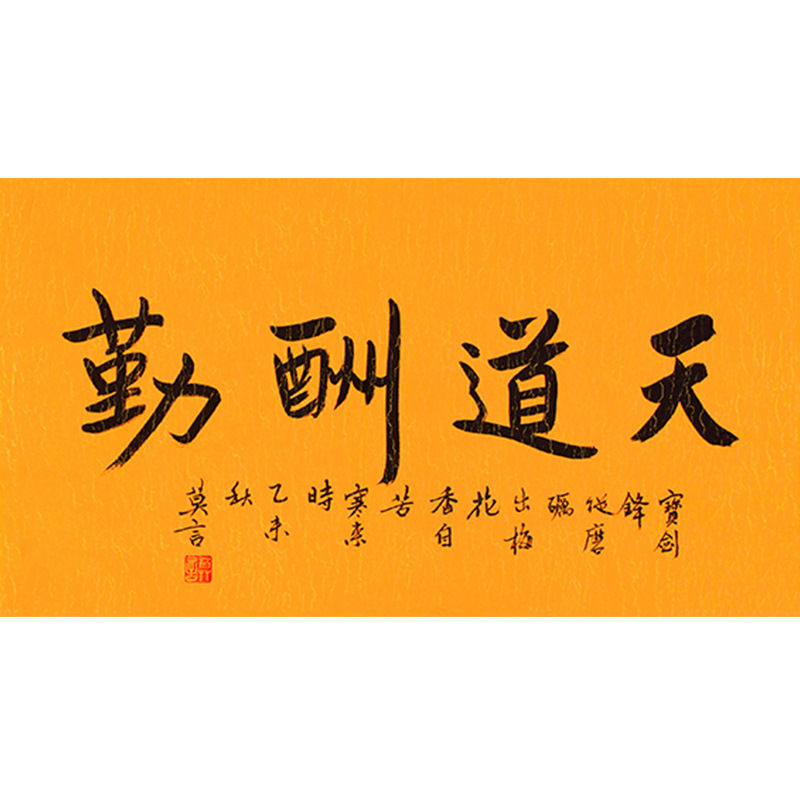 天道酬勤
寶劍
鋒
從磨
礪
出梅
花
香自
苦
寒来
時
乙未
秋
莫言